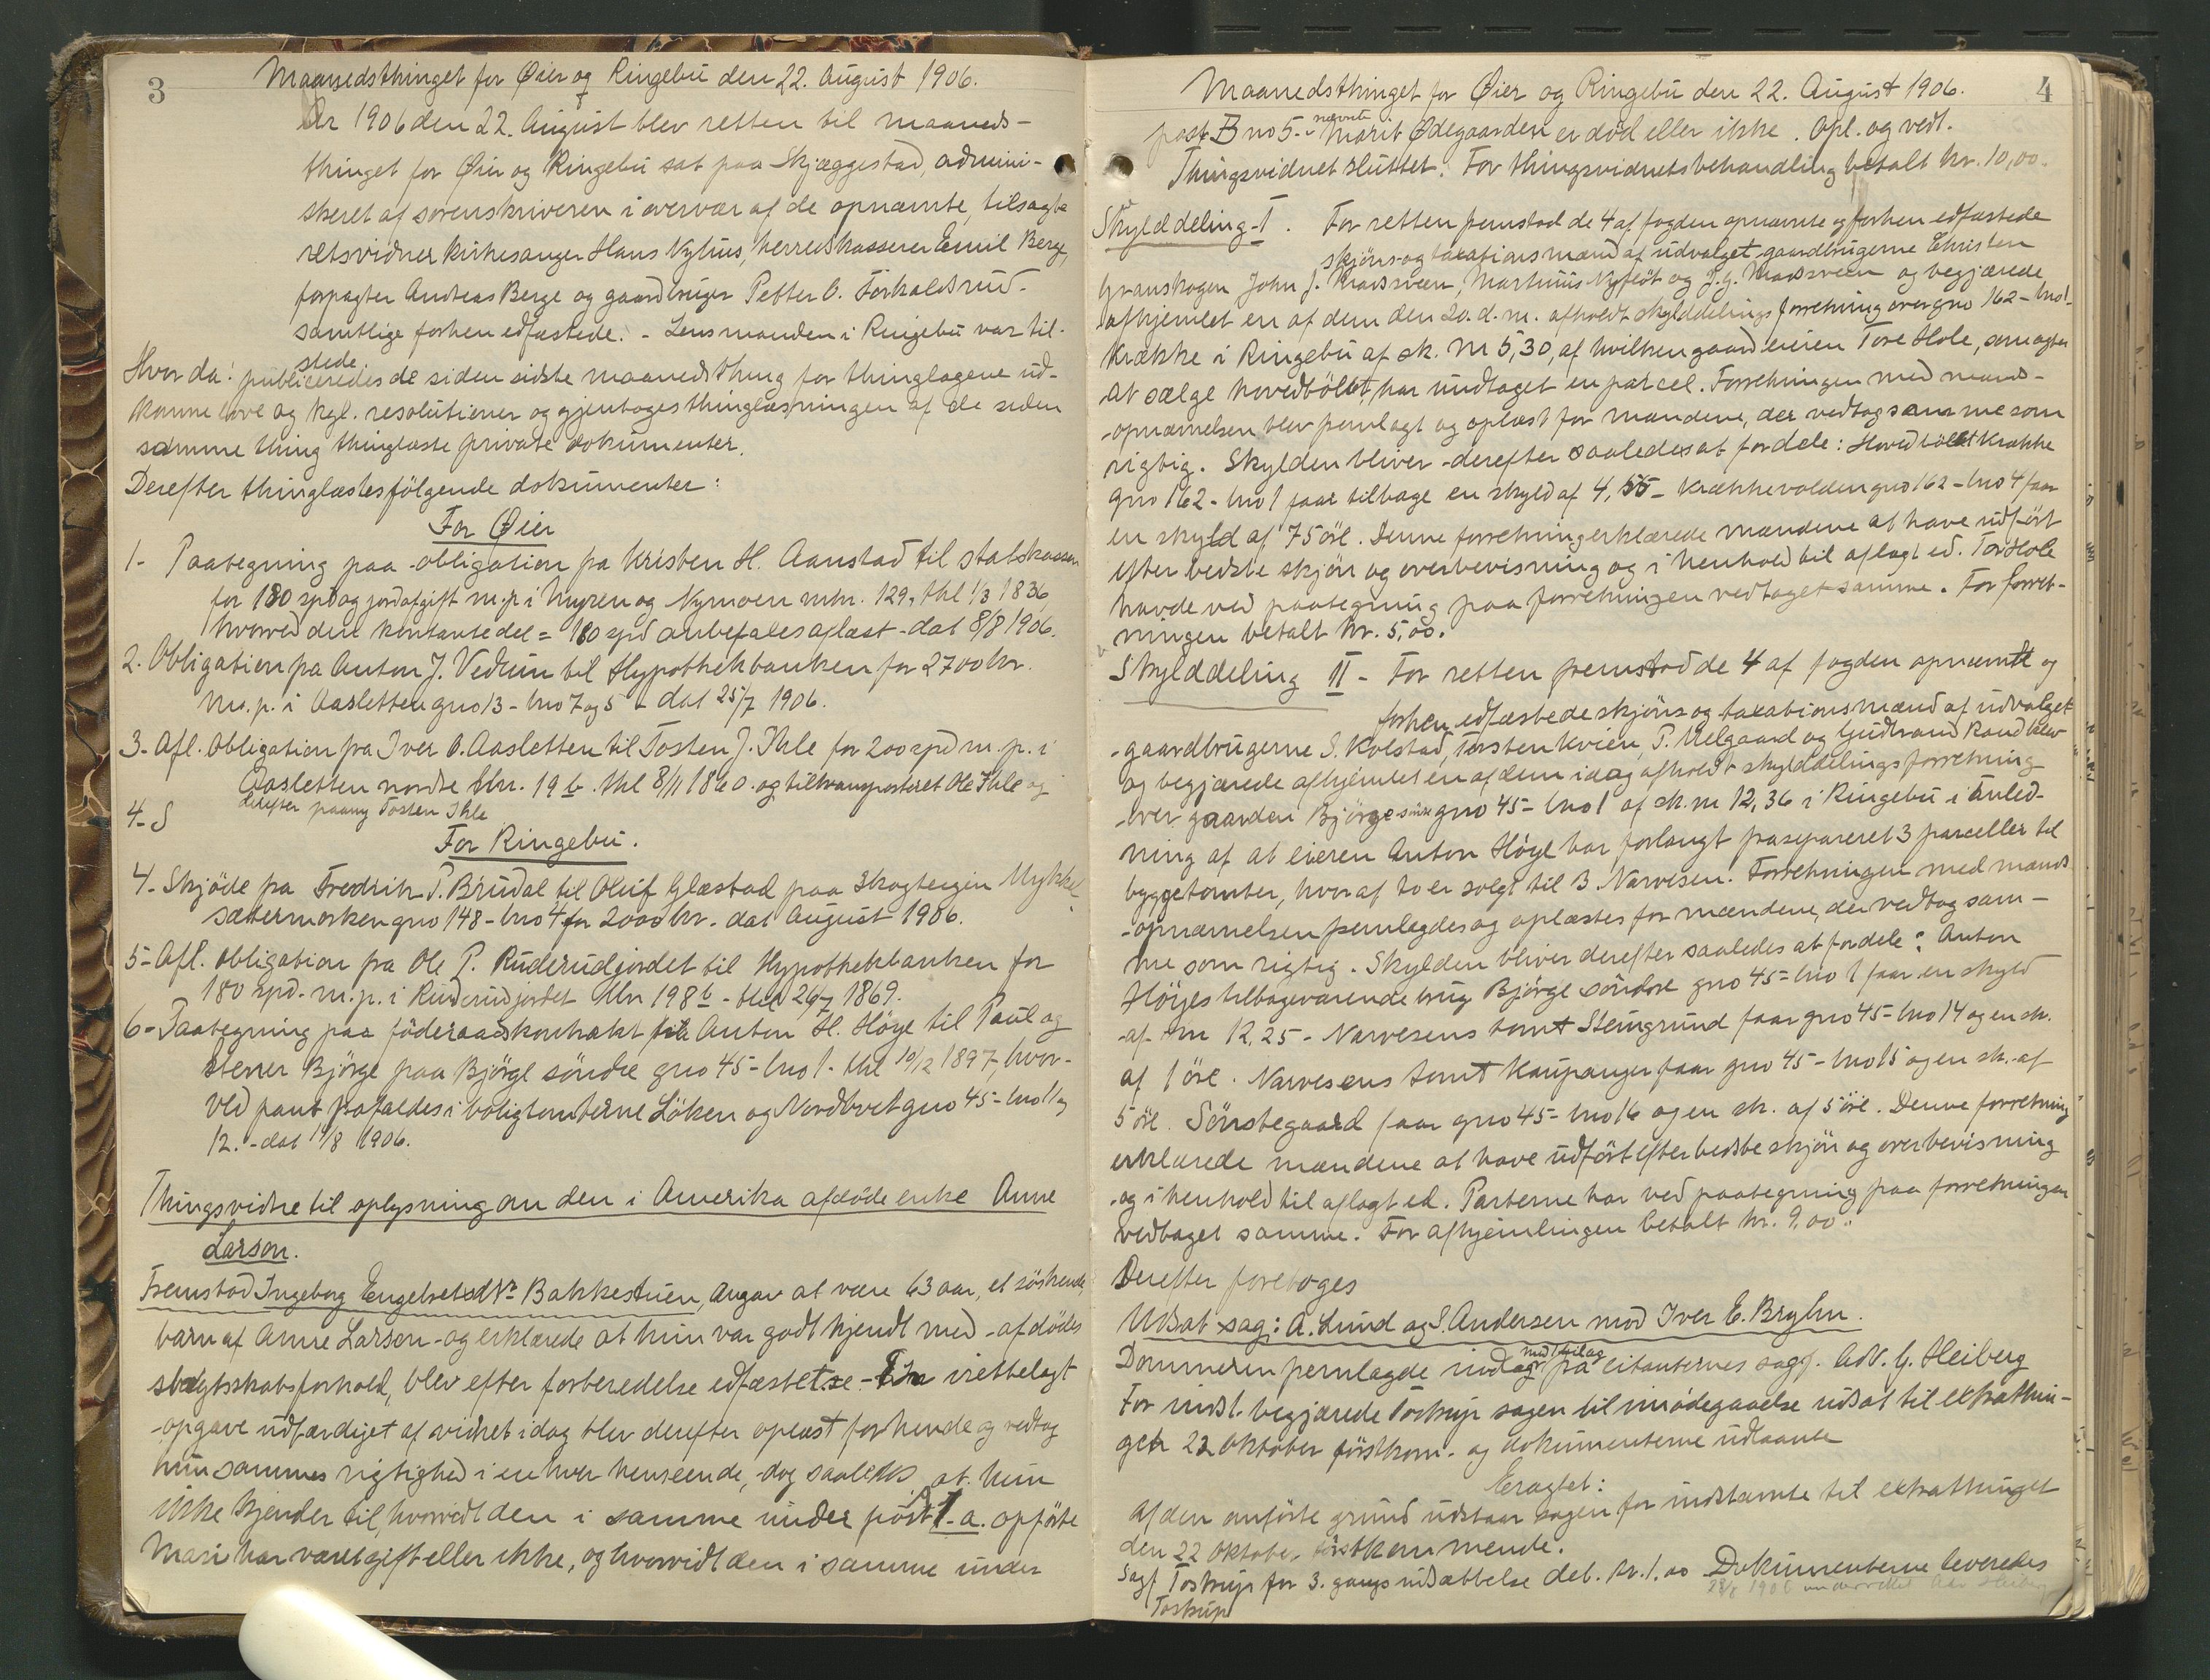 3
Maanedsthinget for Øier og Ringebu den 22. August 1906.
Aar 1906 den 22. August blev retten til maaneds-
thinget for Øier og Ringebu sat paa Skjæggestad, admini-
streret af sorenskriveren i overvær af de opnævnte, tilsagte
retsvidner kirkesanger Hans Nyhus, herredskasserer Emil Berge,
forpagter Andreas Berge og gaardbruger Petter O.
samtlige forhen edfæstede. - Lensmanden i Ringebu var til-
stede
Hvorda: publiceredes de siden sidste maanedsthing for thinglagene ud-
komne love og kgl. resolutioner og gjentoges thinglæsningen af de siden
samme thing thinglæste private dokumenter.
Derefter thinglæstes følgende dokumenter:
For Øier
1- Paategning paa obligation fra Kristen H. Aanstad til statskassen
for 180 spd og jordafgift m.p. i Myren og Nymoen mtr. 129, thl 1/3 1836,
hvorved den kontante del = 180 spd anbefales aflæst - dat 8/8 1906.
2. Obligation fra Anton J. Vedum til Hypothekbanken for 2700 kr.
m.p. i Aasletten gno 13 - bno 7 og 5 - dat 25/7 1906.
3- Afl. Obligation fra Iver O. Aasletten til Tosten J. Ihle for 200 spd m.p. i
Aasletten nordre Mtr. 19 b. thl 8/11 1860. og tiltransporteret Ole Ihle og
derefter paany Tosten Ihle
4- S
For Ringebu.
4- Skjøde fra Fredrik P. Brudal til Oluf Glæstad paa Skogteigen Mykkel-
sætermorken gno 148 - bno 4 for 2000 kr. dat August 1906.
5- Afl. obligation fra Ole P. Ruderudjordet til Hypothekbanken for
180 spd. m.p. i Ruderudjordet Mtr 198 b - thl 26/7 1869.
6- Paategning paa føderaadskontrakt fra Anton H. Høye til Paul og
Stener Bjørge paa Bjørge søndre gno 45 - bno 1. thl 10/12 1897, hvor-
ved pant frafaldes i boligtomterne Løken og Nordbret gno 45 - bno 11 og
12. - dat 14/8 1906.
Thingsvidne til oplysning om den i Amerika afdøde enke Anne
Larson.
Fremstod Ingeborg Engebretsdtr Bakkestuen, angav at være 63 aar, et søskende-
barn af Anne Larson - og erklærede at hun var godt kjendt med afdødes
slægtskabsforhold, blev efter forberedelse edfæstet. En irettelagt
opgave udfærdiget af vidnet idag blev derefter oplæst for hende og vedtog
hun sammes rigtighed i enhver henseende, dog saaledes at hun
ikke kjender til, hvorvidt den i samme under post A 1-a. opførte
Mari har været gift eller ikke, og hvorvidt den i samme under
4
Maanedsthinget for Øier og Ringebu den 22. August 1906.
post B no 5 - nævnte Marit Ødegaarden er død eller ikke. Opl. og vedt.
Thingsvidnet sluttet. For thingsvidnets behandling betalt kr. 10,00.
Skylddeling I. For retten fremstod de 4 af fogden opnævnte og forhen edfæstede
skjøns og taxationsmænd af udvalget gaardbrugerne Christen
Granskogen John J. Kradsveen, Martinus Nyfløt og J.G. Kradsveen og begjærede
afhjemlet en af dem den 20. d.m. afholdt skylddelingsforretning over gno 162 - bno 1
Krække i Ringebu af sk. M 5,30, af hvilken gaard eieren Tore Hole, som agter
at sælge hovedbølet, har undtaget en parcel. Forretningen med mands-
opnævnelsen blev fremlagt og oplæst for mændene, der vedtog samme som
rigtig. Skylden bliver derefter saaledes at fordele: Hovedbølet Krække
gno 162 - bno 1 faar tilbage en skyld af 4,55 - Krækkevolden gno 162 - bno 4 faar
en skyld af 75 øre. Denne forretning erklærede mændene at have udført
efter bedste skjøn og overbevisning og i henhold til aflagt ed. Tor Hole
havde ved paategning paa forretningen vedtaget samme. For forret-
ningen betalt kr. 5,00.
Skylddeling II - For retten fremstod de 4 af fogden opnævnte og
forhen edfæstede skjøns og taxationsmænd af udvalget
gaardbrugerne S. Kolstad, Torsten Kvien, P. Melgaard og Gudbrand Randklev
og begjærede afhjemlet en af dem idag afholdt skylddelingsforretning
over gaarden Bjørge søndre gno 45 - bno 1 af sk. m 12,36 i Ringebu i anled-
ning af at eieren Anton Høye har forlangt frasepareret 3 parceller til
byggetomter, hvoraf to er solgt til B. Narvesen. Forretningen med mands-
opnævnelsen fremlagdes og oplæstes for mændene, der vedtog sam-
me som rigtig. Skylden bliver derefter saaledes at fordele: Anton
Høyes tilbageværende brug Bjørge søndre gno 45 - bno 1 faar en skyld
af m 12,25 - Narvesens tomt Steingrund faar gno 45 - bno 14 og en sk.
af 1 øre. Narvesens tomt Kaupanger faar gno 45 - bno 15 og en sk. af
5 øre. Sønstegaard faar gno 45 - bno 16 og en sk. af 5 øre. Denne forretning
erklærede mændene at have udført efter bedste skjøn og overbevisning
og i henhold til aflagt ed. Parterne har ved paategning paa forretningen
vedtaget samme. For afhjemlingen betalt kr. 9,00.
Derefter foretoges
Udsat sag: A. Lund og S. Andersen mod Iver E. Bryhn.
Dommeren fremlagde indlæg med bilag fra citanternes sagf. Adv. G. Heiberg
For indst. begjærede Tostrup sagen til imødegaaelse udsat til extrathin-
get 22 Oktober førstkom. og dokumenterne udlaante
Eragtet:
Af den anførte grund udstaar sagen for indstævnte til extrathinget
den 22 Oktober førstkommende.
Sagf Tostrup for 3. gangs udsættelse deb. kr. 1.00 Dokumenterne leveredes
Tostrup
28/8 1906 underrettet Adv Heiberg